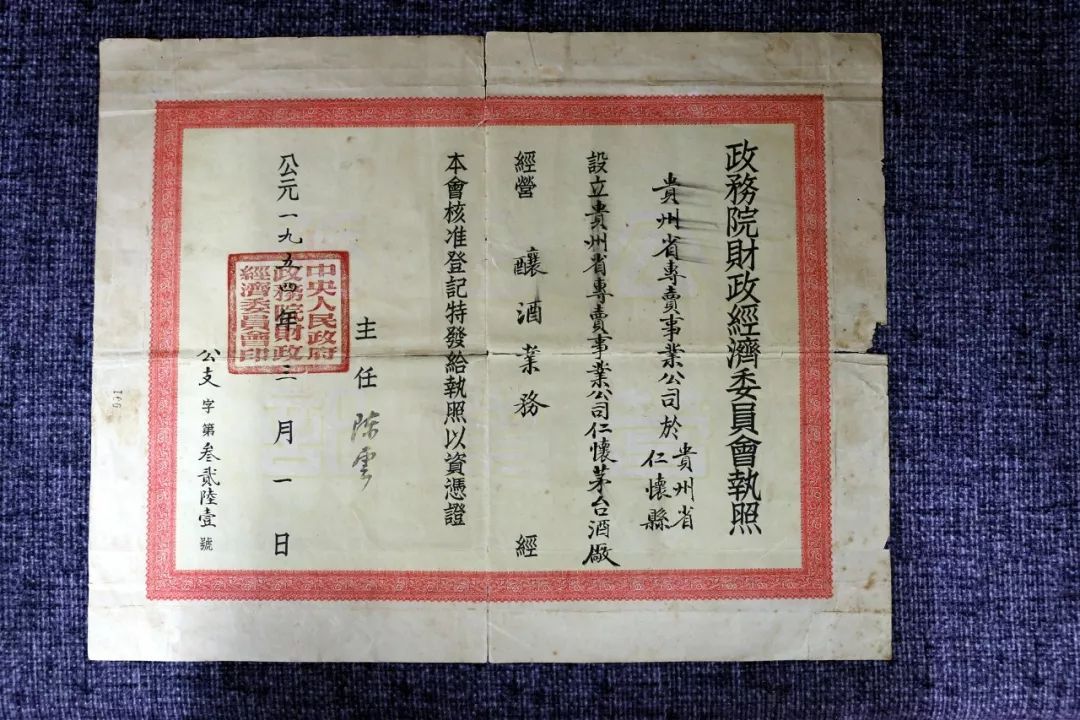 政務院財政經濟委員會執照
貴州省專賣事業公司於貴州省
仁懷縣
設立貴州省專賣事業公司仁懷茅台酒廠
經營 釀酒業務 經
本會核准登記特發給執照以資憑證
主任 陳雲
公元一九五四年三月一日
中央人民政府
政務院財政
經濟委員會印
公支字第叁貳陸壹號